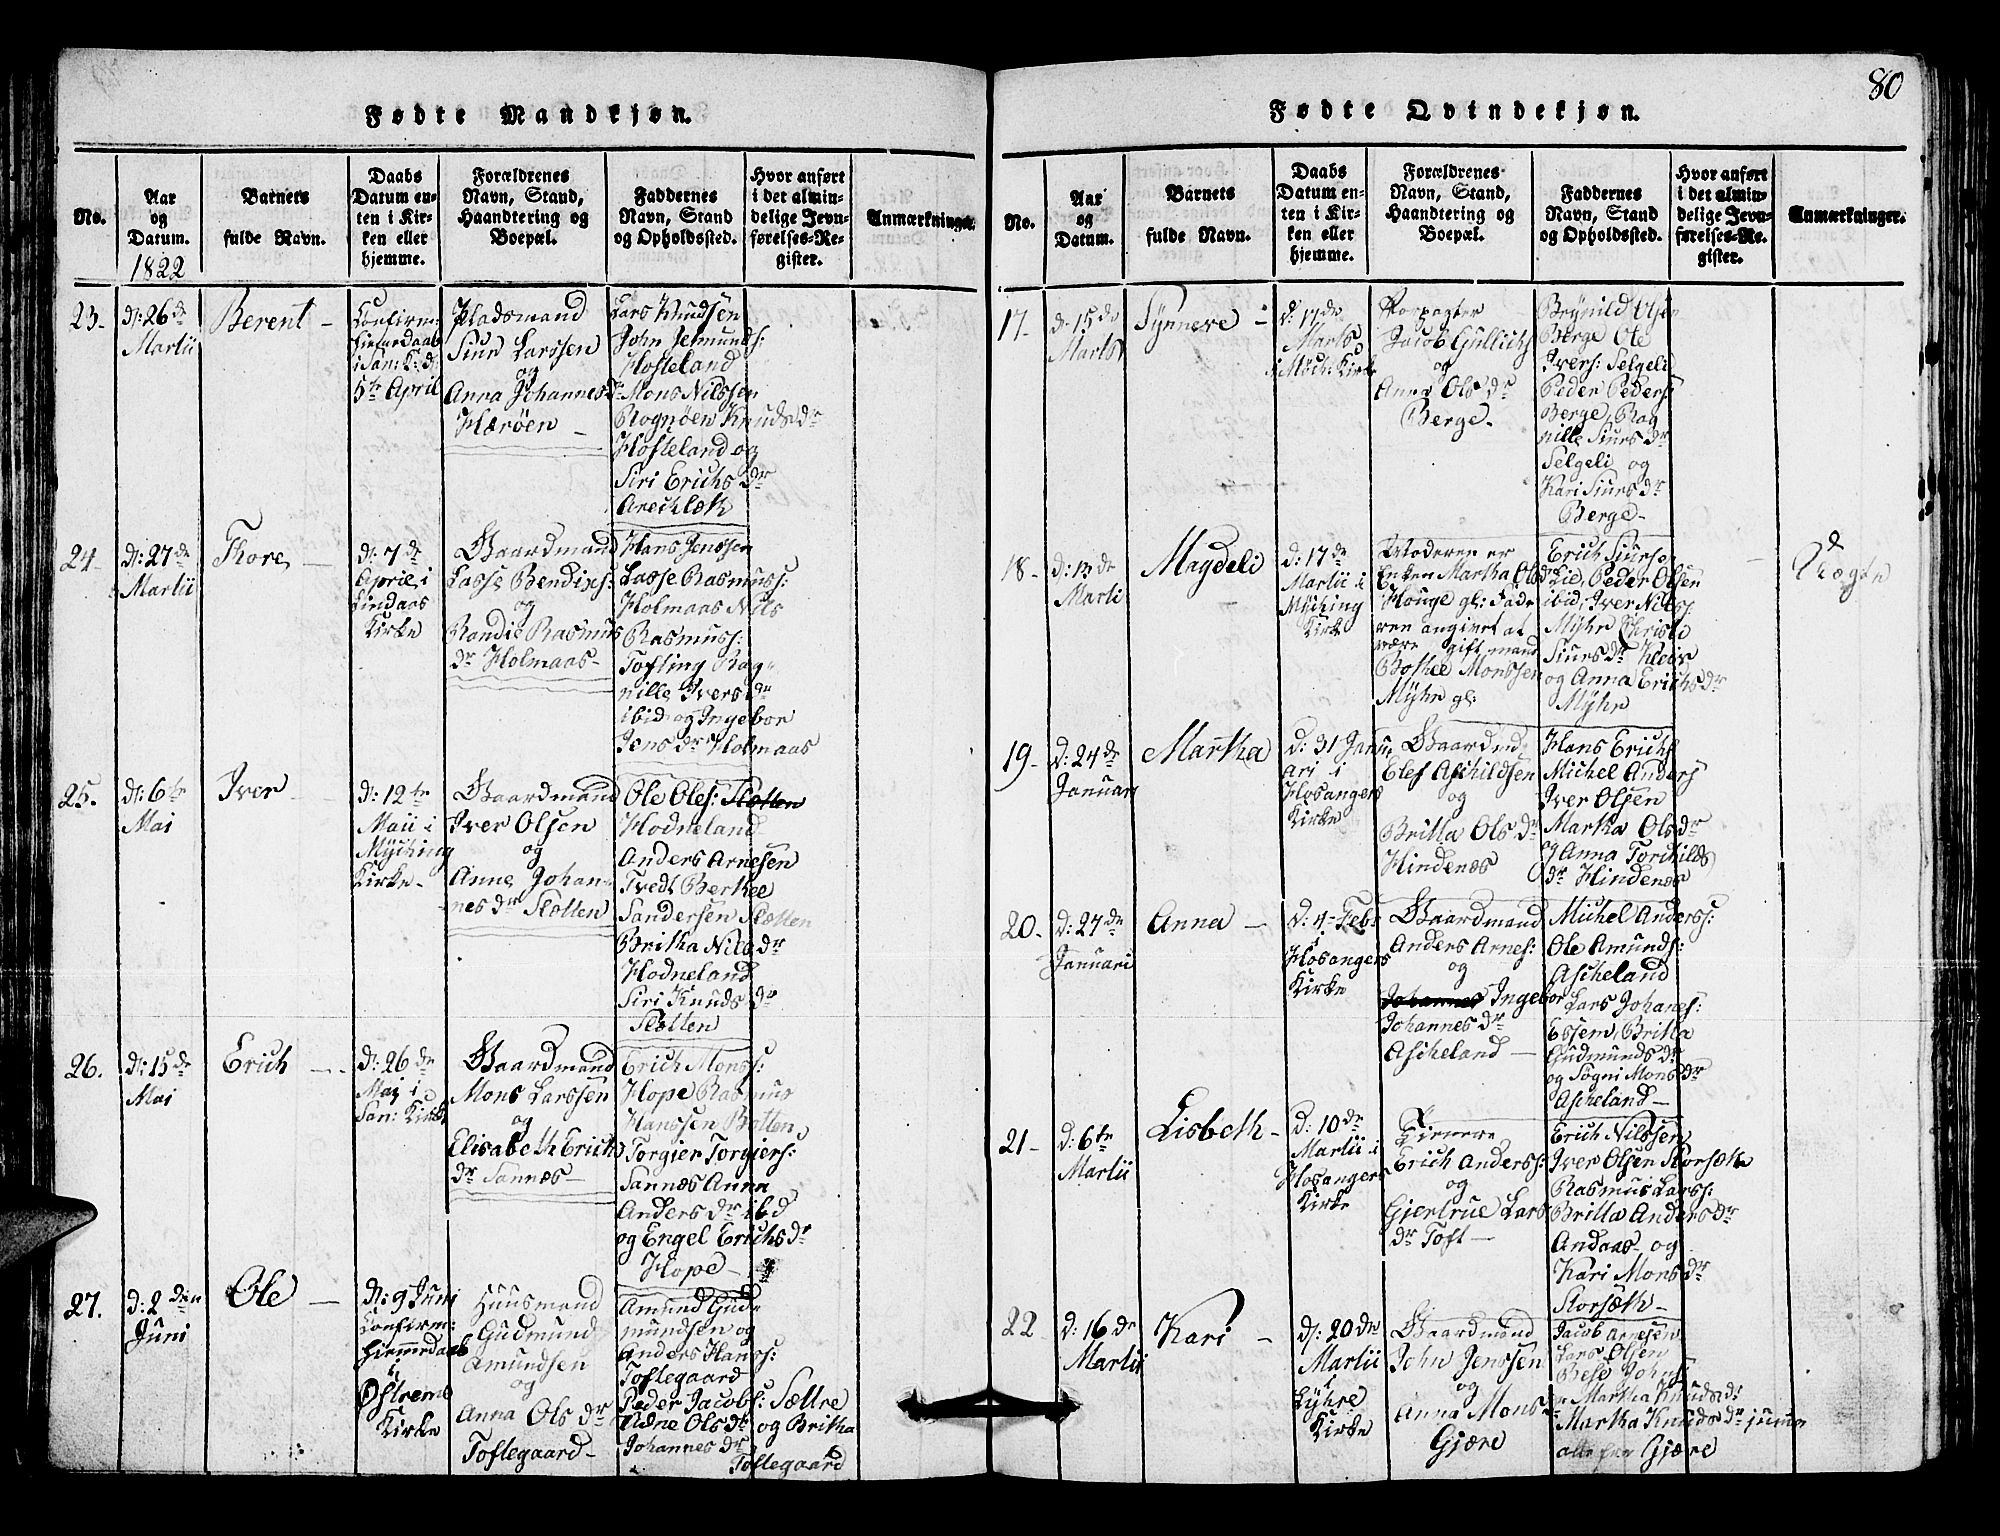 80
Fødte Mandkjøn.
No.
Aar
og
Datum.
1822
Barnets
fulde Navn.
Daabs
Datum en-
ten i Kir-
ken eller
hjemme.
Forældrenes
Navn, Stand,
Haandtering og
Boepæl.
Faddernes
Navn, Stand
og Opholdssted.
Hvor anført
i det almin-
delige Jevn-
førelses-Re-
gister.
Anmærkninger.
23.
d: 26 de
Martii
Berent
Confirm:
hiemdaab
i San: K: d:
5te April
Pladsmand
Siur Larssen
og
Anna Johannesdr
Hærøen
Lars Knudsen
John
Hosteland
Mons Nilssen
Rognøen Knuds dr
Hosteland og
Siri Erichs dr
24
d: 27 de
Martii
Thore
d: 7 de
April i
Lindaas
Kirke
Gaardmand
Lasse Bendixs:
og
Randie Rasmus
dr Holmaas
Hans Jenssen
Lasse Rasmuss:
Holmaas Nils
Rasmuss:
Tofting Rag-
nille Ivers dr
ibid og Ingebor
Jens dr Holmaas
25.
d: 6te
Mai
Iver
d: 12te
Maii i
Myching
Kirke
Gaardmand
Iver Olsen
og
Anne Johan-
nes dr Slætten
Ole Oles: Slætten
Hodneland
Anders Arnesen
Tvedt Berthel
Sandersen Slætten
Britha Nils dr
Hodneland
Siri Knuds dr
Slætten
26.
d: 15 de
Mai
Erich
d: 26 de
Mai i
San: Kirke
Gaardmand
Mons Larssen
og
Elisabeth Erichs
dr Sannæs
Erich Monss:
Hope Rasmus
Hanssen Botten
Torgier Torgiers:
Sannæs Anna
Anders dr ibd
og Engel Erichs dr
Hope
27.
d: 2 den
Juni
Ole
d: 9 Juni
Confirm:
hiemmedaab
i
Østrems
Kirke
Huusmand
Gudmund
Amundsen
og
Anna Ols dr
Toftegaard
Amund Gud-
mundsen og
Anders Hanss:
Toftegaard
Peder Jacobs: Sættre
Ols dr og Britha
Johannes dr
Toftegaard
Fødte Qvindekjøn.
No.
Aar
og
Datum.
Barnets
fulde Navn.
Daabs
Datum en-
ten i Kir-
ken eller
hjemme.
Forældrenes
Navn, Stand,
Haandtering og
Boepæl.
Faddernes
Navn, Stand
og Opholdssted.
Hvor anført
i det almin-
delige Jevn-
førelses-Re-
gister.
Anmærkninger.
17.
d: 15 de
Marts
Synneve
d: 17 de
Marts
i Mych: Kirke
Forpagter
Jacob Gullichs
og
Anna Ols dr
Berge
Brynild Olsen
Berge Ole
Ivers: Selgeli
Peder Peders
Berge, Rag
nille Siurs dr
Selgeli og
Kari Siurs dr
Berge
18.
d: 13 de
Marti
Magdeli
d: 17 de
Martii i
Myching
Kirke
Moderen er
Enken Martha Olsdr
Houge gl: Fade
ren angivet at
være gift mand
Bothel Monssen
Myhr gl:
Erich Siursen
Lie, Peder Olsen
ibid, Iver Nils:
Myhr Christi
Siurs dr Kleiv
og Anna Erichs dr
Myhr
19
d: 24 de
Januari
Martha
d: 31 Janu
ari i
Hosangers
Kirke
Gaardmd
Elef Aschildsen
og
Britta Ols dr
Hindenæs
Hans Erichs
Michel Anders
Iver Olsen
Martha Ols dr
Anna Torchilds
dr Hindenæs
20.
d: 27 de
Januari
Anna
d: 4 Feb:
i
Hosangers
Kirke
Gaardmand
Anders Arnes:
og
Johannes Ingebor
Johannes dr
Ascheland
Michel Anderss:
Ole Amunds:
Ascheland
Lars Johanes:
Essem, Britta
Gudmunds dr
og Søgni Mons dr
Ascheland
21
d: 6te
Martii
Lisbeth
d: 10 de
Martii i
Hosangers
Kirke
Erich Anderss:
og
Gjertrue Lars
dr Toft
Erich Nilssen
Iver Olsen Storsæth
Rasmus Larss:
Britta Anders dr
Andaas og
Kari Mons dr
Storsæth
22
d: 16 de
Martii
Kari
d: 20 de
Martii
i
Lyhre
Kirke
Gaardmand
John Jenssen
og
Anna Mons
Gjære
Jacob Arnesen
Lars Olsen
Martha Knuds dr
Martha Knuds dr
alle fra Gjære